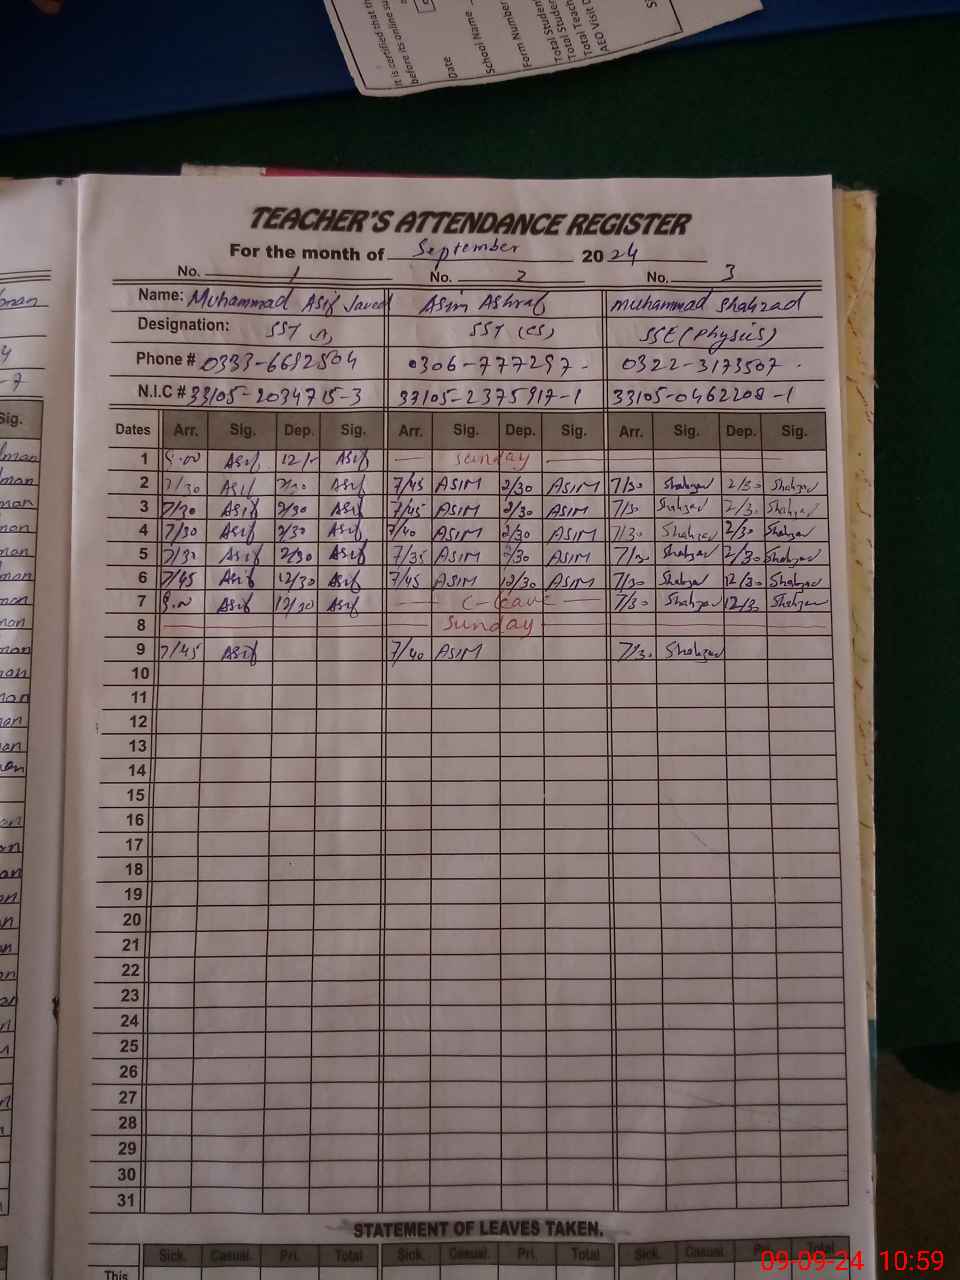 It is certified that th
before its online su
Date
School Name -
Form Number
Total Studen
Total Studer
Total Teach
AEO Visit D
TEACHER'S ATTENDANCE REGISTER
For the month of September 2024
No. 1 No. 2 No. 3
Name: Muhammad Asif Javed Asim Ashraf Muhammad Shahzad
Designation: SST SST (CS) SSE (Physics)
Phone # 0333-6682504 0306-777297 0322-3173507
N.I.C # 33105-2034715-3 33105-2375917-1 33105-0462208-1
Dates Arr. Sig. Dep. Sig. Arr. Sig. Dep. Sig. Arr. Sig. Dep. Sig.
1 Asif 12/- Asif Sunday
2 7/30 Asif 2/30 Asif 7/45 ASIM 2/30 ASIM 7/30 Shahzad 2/30 Shahzad
3 7/30 Asif 2/30 Asif 7/45 ASIM 2/30 ASIM 7/30 Shahzad 2/30 Shahzad
4 7/30 Asif 2/30 Asif 7/40 ASIM 2/30 ASIM 7/30 Shahzad 2/30 Shahzad
5 7/30 Asif 2/30 Asif 7/35 ASIM 2/30 ASIM 7/30 Shahzad 2/30 Shahzad
6 7/45 Asif 12/30 Asif 7/45 ASIM 12/30 ASIM 7/30 Shahzad 12/30 Shahzad
7 Asif 12/30 Asif C-leave 7/30 Shahzad 12/30 Shahzad
8 Sunday
9 7/45 Asif 7/40 ASIM 7/30 Shahzad
10
11
12
13
14
15
16
17
18
19
20
21
22
23
24
25
26
27
28
29
30
31
STATEMENT OF LEAVES TAKEN.
Sick. Casual. Pri. Total Sick. Casual. Pri. Total Sick. Casual. Pri. Total
This
09-09-24 10:59